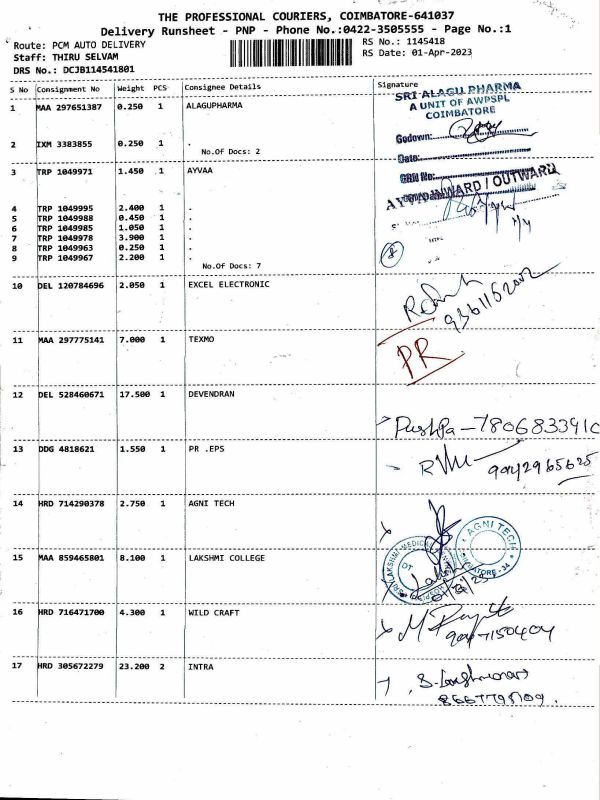 THE PROFESSIONAL COURIERS, COIMBATORE-641037
Delivery Runsheet - PNP - Phone No.:0422-3505555 - Page No.:1
Route: PCM AUTO DELIVERY
RS No.: 1145418
Staff: THIRU SELVAM
RS Date: 01-Apr-2023
DRS No.: DCJB114541801
S No Consignment No Weight PCS Consignee Details Signature
1 MAA 297651387 0.250 1 ALAGUPHARMA
SRI ALAGU PHARMA
A UNIT OF AWPSPL
COIMBATORE
Godown:
2 IXM 3383855 0.250 1 .
No.Of Docs: 2
Date:
GRN No:
3 TRP 1049971 1.450 1 AYVAA
INWARD / OUTWARD
4 TRP 1049995 2.400 1 .
5 TRP 1049988 0.450 1 .
6 TRP 1049985 1.050 1 .
7 TRP 1049978 3.900 1 .
8 TRP 1049963 0.250 1 .
9 TRP 1049967 2.200 1 .
No.Of Docs: 7
8
10 DEL 120784696 2.050 1 EXCEL ELECTRONIC
11 MAA 297775141 7.000 1 TEXMO
PR
12 DEL 528460671 17.500 1 DEVENDRAN
Pushpa - 7806833910
13 DDG 4818621 1.550 1 PR .EPS
9042965625
14 HRD 714290378 2.750 1 AGNI TECH
AGNI TECH
COIMBATORE-34
15 MAA 859465801 8.100 1 LAKSHMI COLLEGE
16 HRD 716471700 4.300 1 WILD CRAFT
17 HRD 305672279 23.200 2 INTRA